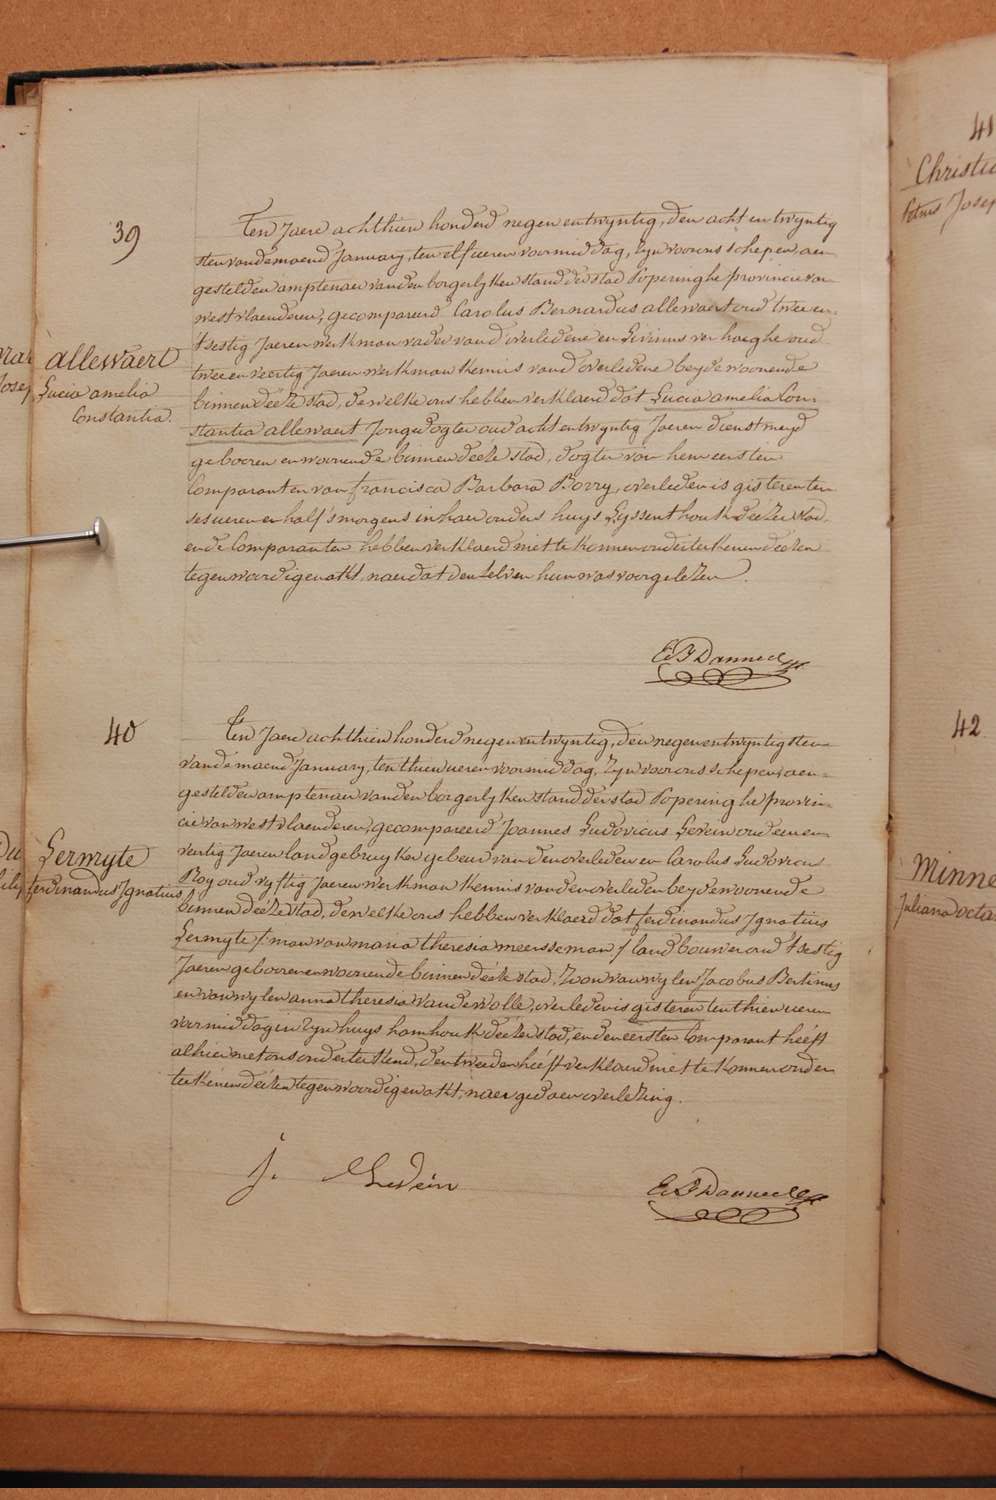 39
allewaert
Lucia amelia
Constantia.
Ten Jaere achthien honderd negen en twyntig, den acht en twyntig
sten van de maend January, ten elf ueren voormiddag, Zyn voor ons schepen, aen-
gestelden amptenaer van den borgerlyken stand der stad Poperinghe provincie van
westvlaenderen, gecompareerd Carolus Bernardus allewaert oud twee en
't sestig Jaeren werkman vader van d'overledene en Livinus verhaeghe oud
twee en veertig Jaeren werkman kennis van d'overledene beyde woonende
binnen deéze stad, dewelke ons hebben verklaerd dat Lucia amelia Con-
stantia allewaert Jonge dogter oud acht en twyntig Jaeren dienstmeyd
gebooren en woonende binnen deéze stad, dogter van hem eersten
Comparant en van francisca Barbara Borry, overleden is gisteren ten
ses ueren en half 's morgens in haer ouders huys Eyssenthouk deézer stad,
en de Comparanten hebben verklaerd niet te konnen onderteekenen deézen
tegenwoordigen akt, naer dat den zelven hun was voorgelezen.
E. F. Danneel
40
Lermyte
ferdinandus Ignatius
Ten Jaere achthien honderd negen en twyntig, den negen en twyntigsten
van de maend January, ten thien ueren voormiddag, Zyn voor ons schepen, aen-
gestelden amptenaer van den borgerlyken stand der stad Poperinghe provin-
cie van westvlaenderen, gecompareerd Joannes Ludovicus Levein oud een en
veertig Jaeren landgebruyker gebeur van den overleden en Carolus Ludovicus
Roy oud vyftig Jaeren werkman kennis van den overleden beyde woonende
binnen deéze stad, dewelke ons hebben verklaerd dat ferdinandus Ignatius
Lermyte / man van maria theresia meersseman / landbouwer oud 't sestig
Jaeren gebooren en woonende binnen deéze stad, Zoon van wylen Jacobus Bertinus
en van wylen anna theresia vandewalle, overleden is gisteren ten thien ueren
voormiddag in zyn huys hamhouk deézer stad, en den eersten Comparant heéft
alhier met ons onderteekend, den tweeden heéft verklaerd niet te konnen onder-
teekenen deézen tegenwoordigen akt, naer gedaen overlezing.
J. L Levein
E. F. Danneel
41
Petrus Josep
42
Minne
Juliana octa